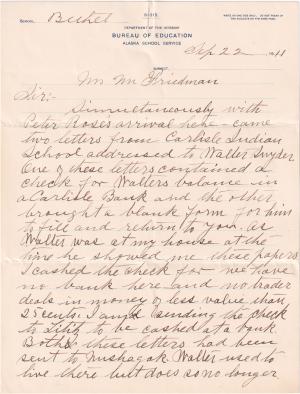 SCHOOL, Bethel
DEPARTMENT OF THE INTERIOR
BUREAU OF EDUCATION
ALASKA SCHOOL SERVICE
Sep 22 1911
SUBJECT:
Mr M Friedman
Sir:-
Simultaneously with
Peter Rose's arrival here came
two letters from Carlisle Indian
School addressed to Walter Snyder
One of these letters contained a
check for Walters balance in
a Carlisle Bank and the other
brought a blank form for him
to fill and return to you. As
Walter was at my house at the
time he showed me these papers
I cashed the check for we have
no bank here and no trader
deals in money of less value than
25 cents. I am sending the check
to be cashed at a bank.
Both these letters had been
sent to Nushagak. Walter used to
live there but does so no longer